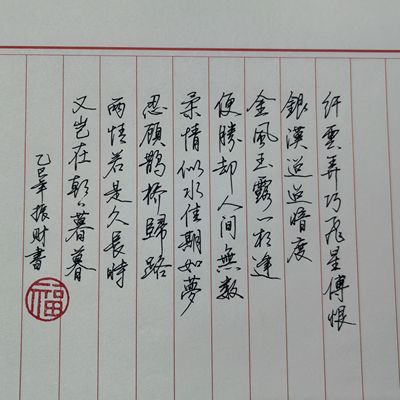 纤雲弄巧飛星傳恨
銀漢迢迢暗度
金風玉露一相逢
便勝却人间無数
柔情似水佳期如夢
忍顾鹊桥歸路
兩情若是久長時
又岂在朝々暮暮
乙巳年振财書
福